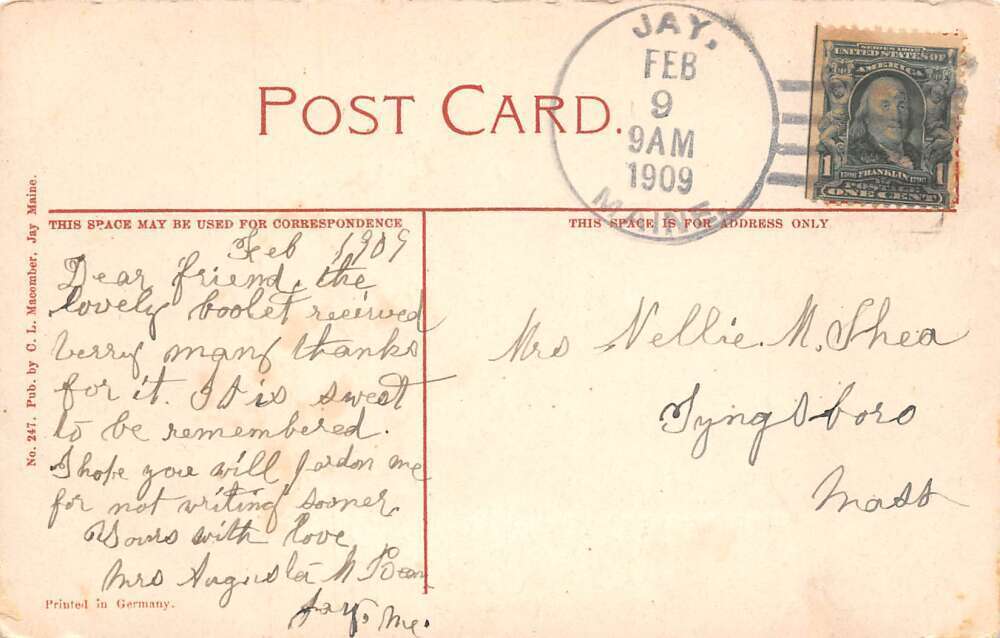 JAY,
FEB
9
9AM
1909
MAINE.
SERIES 1902
UNITED STATES OF
AMERICA
1 1
1706 FRANKLIN 1790
POSTAGE
ONE CENT
POST CARD.
THIS SPACE MAY BE USED FOR CORRESPONDENCE
THIS SPACE IS FOR ADDRESS ONLY
No. 247. Pub. by C. L. Macomber, Jay Maine.
Feb 1909
Dear friend, the
lovely boolet reeirved
verry many thanks
for it. It is sweet
to be remembered.
I hope you will pardon me
for not writing sooner.
Yours with love
Mrs Augusta M Bean
Jay, Me.
Mrs Nellie. M. Shea
Tyngsboro
Mass
Printed in Germany.